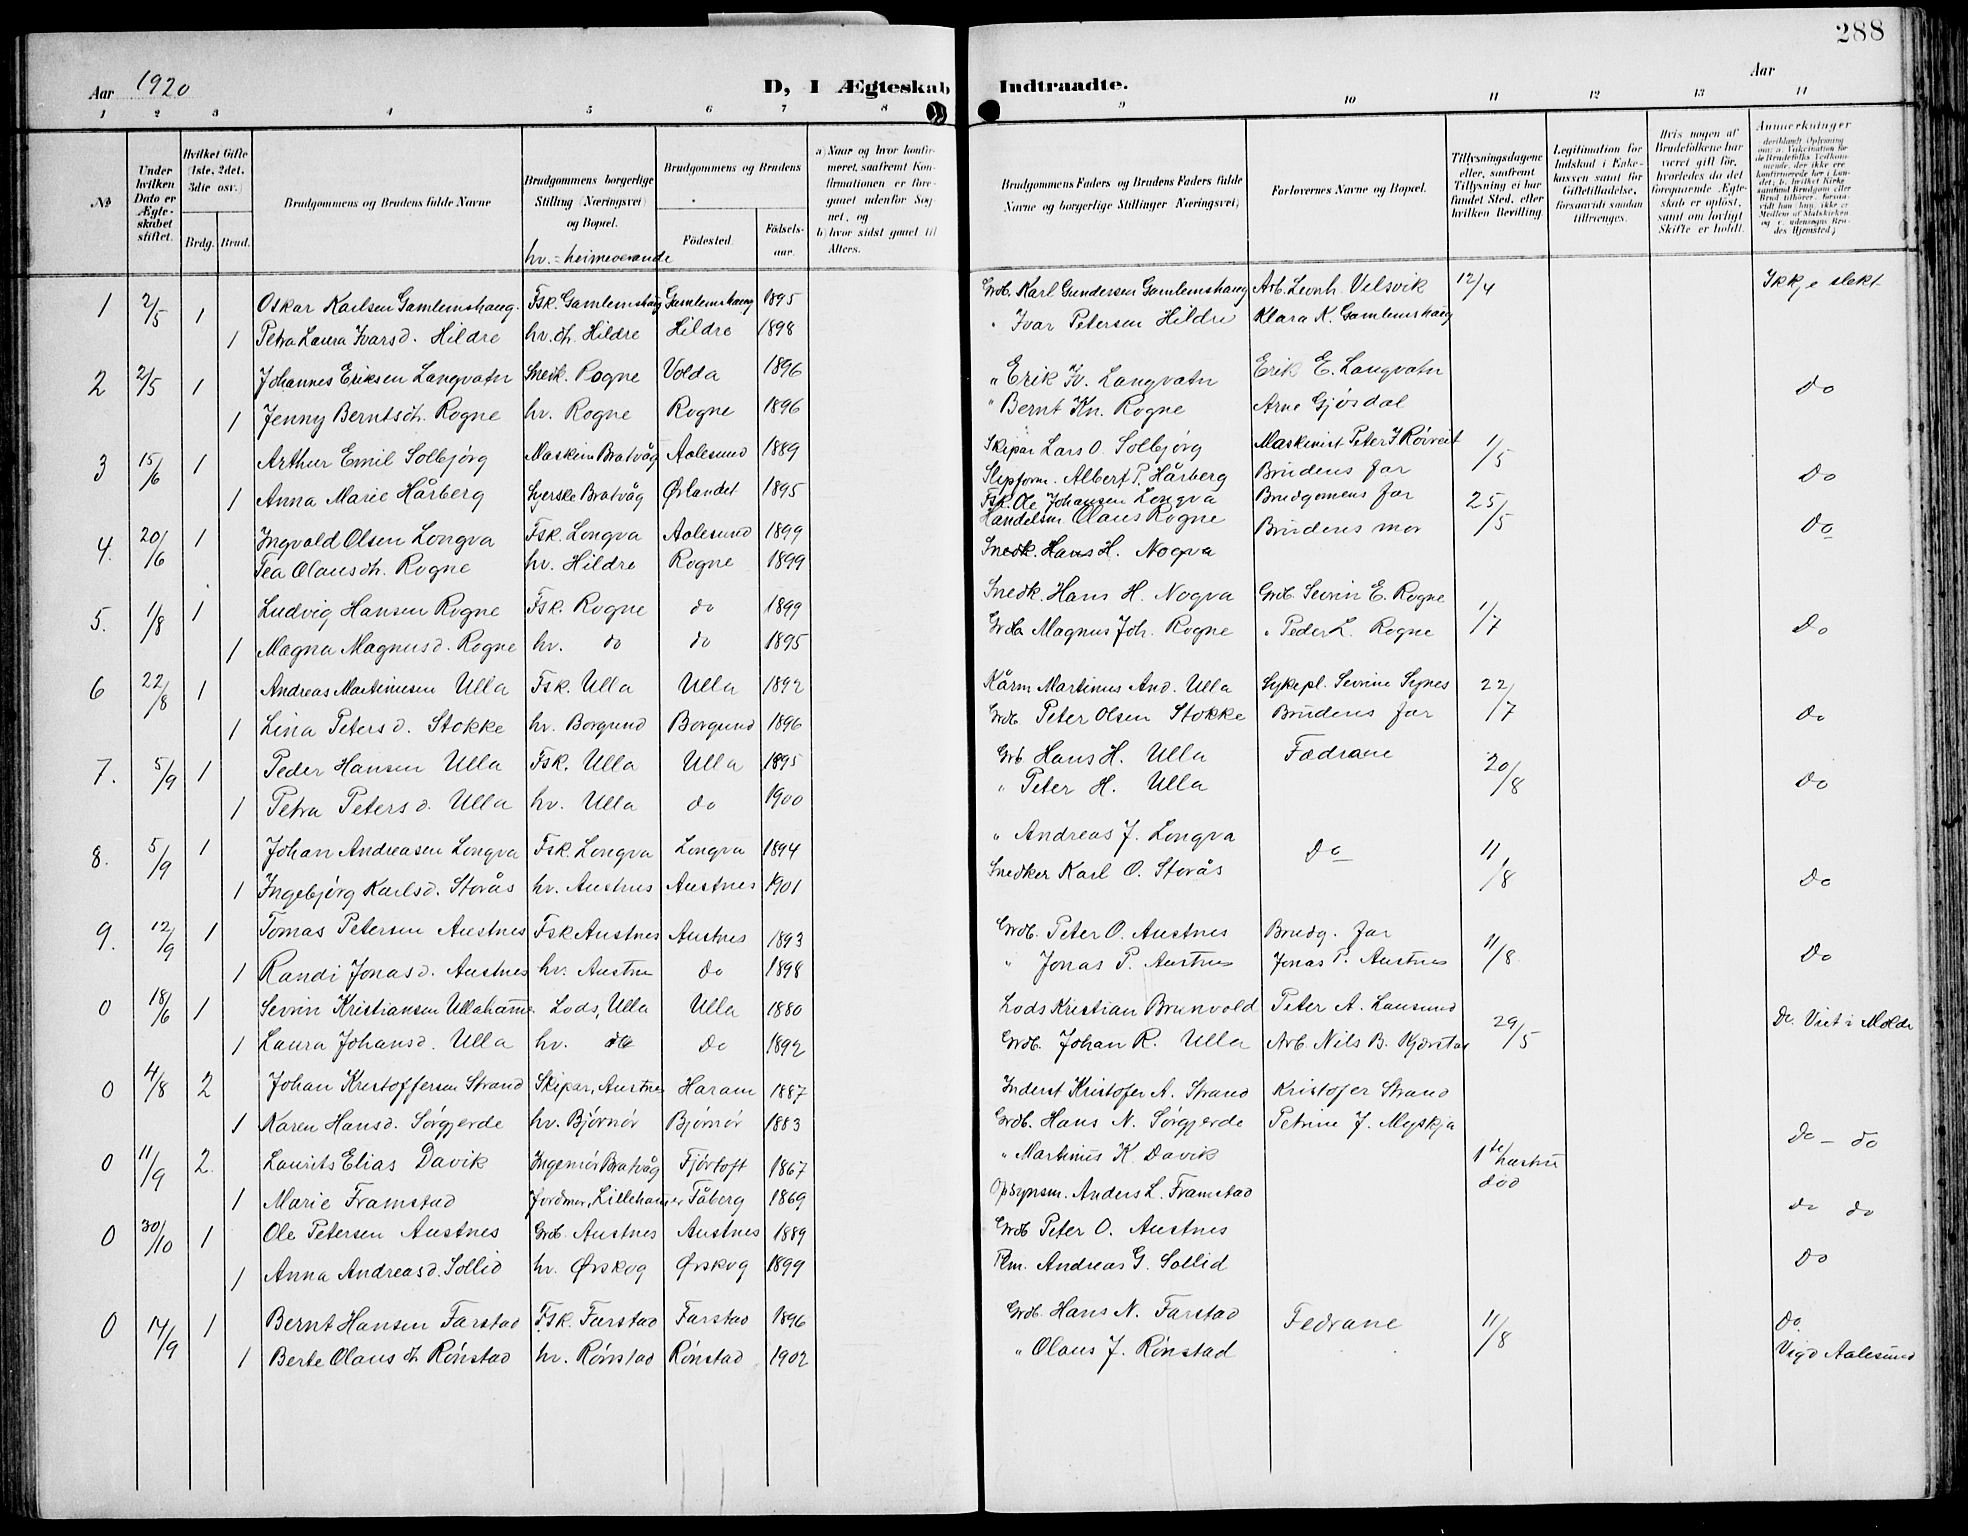 288
Aar 1920
D, I Ægteskab Indtraadte.
Aar
1 2 3 4 5 6 7 8 9 10 11 12 13 14
№
Under hvilken Dato er Ægteskabet stiftet.
Hvilket Gifte (1ste, 2det, 3die osv.)
Brdg. Brud.
Brudgommens og Brudens fulde Navne
Brudgommens borgerlige Stilling (Næringsvei) og Bopæl.
hv. = heimeverande
Brudgommens og Brudens
Fødested.
Fødselsaar.
a) Naar og hvor konfirmeret, saafremt Konfirmationen er foregaaet udenfor Sognet, og
b) hvor sidst gaaet til Alters.
Brudgommens Faders og Brudens Faders fulde Navne og borgerlige Stillinger (Næringsvei)
Forlovernes Navne og Bopæl.
Tillysningsdagene eller, saafremt Tillysning ei har fundet Sted, efter hvilken Bevilling.
Legitimation for Indskud i Enkekassen samt for Giftetilladelse, forsaavidt saadan tiltrænges.
Hvis nogen af Brudefolkene har været gift før, hvorledes da det foregaaende Ægteskab er opløst, samt om lovligt Skifte er holdt.
Anmerkninger
1 2/5 1 Oskar Karlsen Gamlemshaug. Fsk. Gamlemshaug Gamlemshaug 1895 Grdb. Karl Gundersen Gamlemshaug Arb. Leonh. Velsvik 12/4 Ikkje slekt
1 Petra Laura Ivarsd. Hildre hv. ds. Hildre Hildre 1898 " Ivar Petersen Hildre Klara K. Gamlemshaug
2 2/5 1 Johannes Eriksen Langvatn Snedk. Rogne Volda 1896 " Erik Iv. Langvatn Erik E. Langvatn do
1 Jenny Berntsdt. Rogne hv. Rogne Rogne 1896 " Bernt Kn. Rogne Arne Gjøsdal
3 15/6 1 Arthur Emil Solbjørg Maskein Bratvåg Aalesund 1889 Skipar Lars O. Solbjørg Maskinist Peter I Røiveit 1/5 Do
1 Anna Marie Hårberg Syerske Bratvåg Ørlandet 1895 Slipform. Albert P. Hårberg Brudens far
4. 20/6 1 Ingvald Olsen Longva Fsk. Longva Aalesund 1899 Fsk. Ole Johansen Longva Brudgomens far 25/5 Do
Tea Olausdt. Rogne hv. Hildre Rogne 1899 Handelsm Olaus Rogne Brudens mor
Snedk. Hans H. Nogva
5. 1/8 1 Ludvig Hansen Rogne Fsk. Rogne do 1899 Snedk. Hans H. Nogva Grdb. Sevrin E. Rogne 1/7 Do
1 Magna Magnusd. Rogne hv. do do 1895 Grdb. Magnus Joh. Rogne " Peder L. Rogne
6 22/8 1 Andreas Martinusen Ulla Fsk. Ulla Ulla 1892 Kårm Martinus And. Ulla Sykepl. Sevrine Synes 22/7 Do
1 Lina Petersd. Stokke hv. Borgund Borgund 1896 Grdb. Peter Olsen Stokke Brudens far
7. 5/9 1 Peder Hansen Ulla Fsk. Ulla Ulla 1895 Grb Hans H. Ulla Fædrane 20/8 Do
1 Petra Petersd. Ulla hv. Ulla do 1900 " Peter H. Ulla
8. 5/9 1 Johan Andreasen Longva Fsk. Longva Longva 1894 " Andreas J. Longva Do 11/8 Do
1 Ingebjørg Karlsd. Storås hv. Austnes Austnes 1901 Snedker Karl O. Storås
9. 12/9 1 Tomas Petersen Austnes Fsk Austnes Austnes 1893 Grdb. Peter O. Austnes Brudg. far 11/8 Do
1 Randi Jonasd. Austnes hv. Austne Do 1898 " Jonas P. Austnes Jonas P. Austnes
0 18/6 1 Sevrin Kristiansen Ullahamne Lods, Ulla Ulla 1880 Lods Kristian Brunvold Peter A. Lausund 29/5 Do. Viet i Molde
1 Laura Johansd. Ulla hv. do Do 1892 Grdb. Johan R. Ulla Arb. Nils B. Kjerstad
0 4/8 2 Johan Kristoffersen Strand Skipar, Austnes Haram 1887 Inderst Kristofer A. Strand Kristofer Strand
1 Karen Hansd. Sørgjerde hv. Bjørnør Bjørnør 1883 Grdb. Hans N. Sørgjerde Petrine J. Myskja do - do
0 11/9 2. Laurits Elias Davik Ingeniør Bratvåg Fjørtoft 1867 " Martinus K. Davik 1te hustru død
1 Marie Framstad Jordmor, Lillehamer Fåberg 1869 Opsynsm. Anders L. Framstad do do
0 30/10 1 Ole Petersen Austnes Grdb. Austnes Austnes 1889 Grdb Peter O. Austnes
1 Anna Andreasd. Sollid hv. Ørskog Ørskog 1899 Plm. Andreas G. Sollid Do
0 14/9 1 Bernt Hansen Farstad Fsk. Farstad Farstad 1896 Grdb. Hans N. Farstad Fedrane 11/8 Do.
1 Berte Olausdt. Rønstad hv. Rønstad Rønstad 1902 " Olaus J. Rønstad Vigd Aalesund